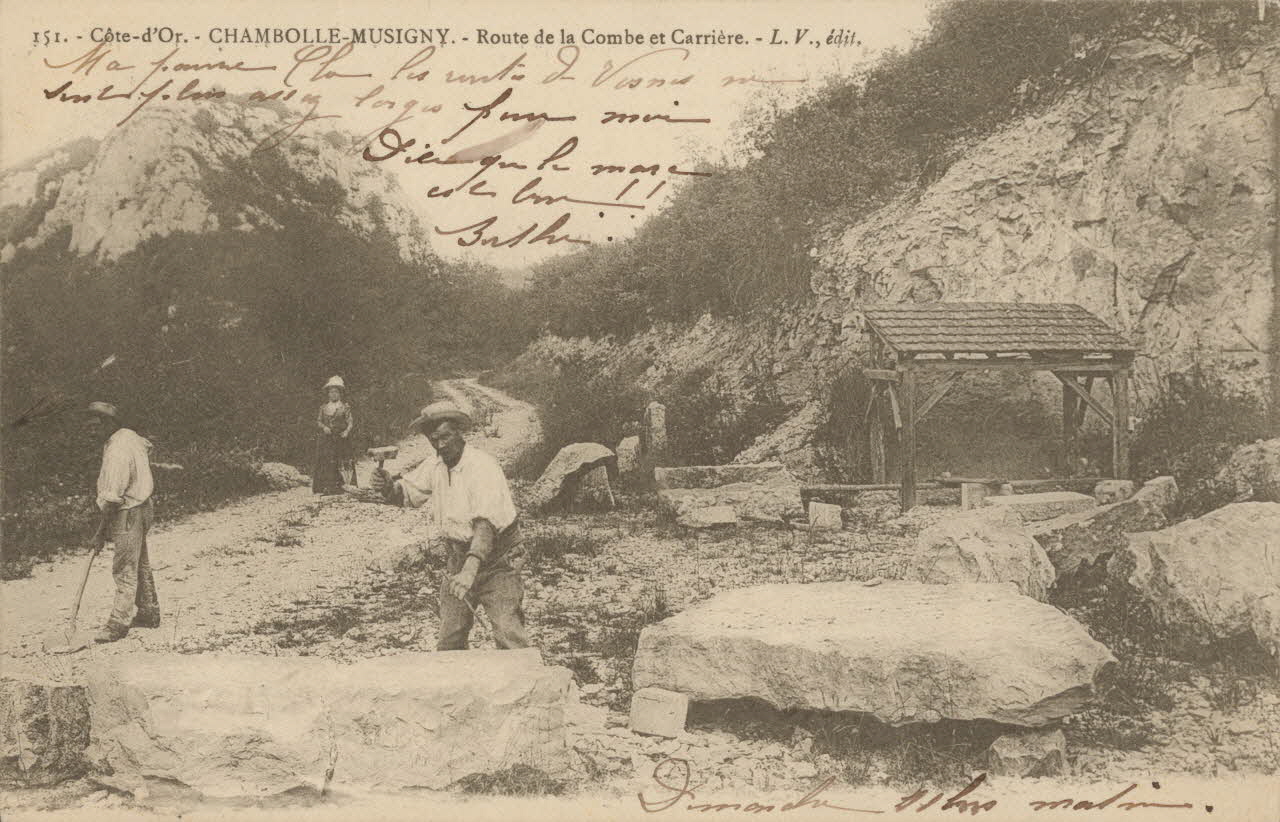 151. - Côte-d'Or. - CHAMBOLLE-MUSIGNY. - Route de la Combe et Carrière. - L. V., édit.
Ma pauvre Clo les routes de Vosnes ne
sont plus assez larges pour moi
Dire que le masc
est bon !!
Berthe.
Dimanche 11 hrs matin.